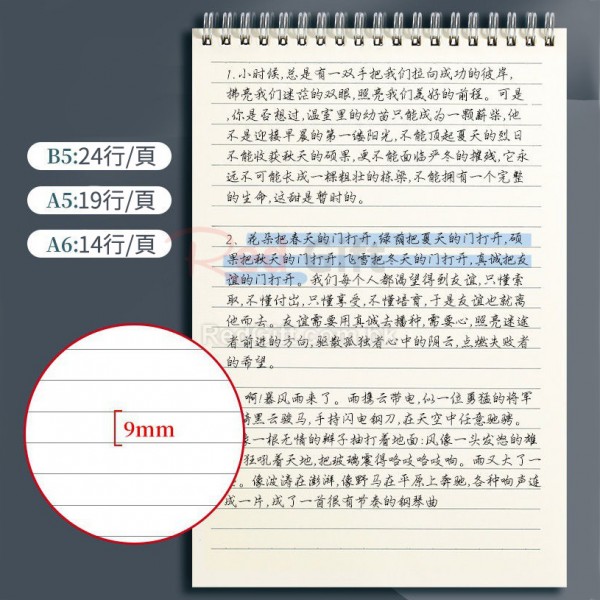 1.小时候,总是有一双手把我们拉向成功的彼岸,
拂亮我们迷茫的双眼,照亮我们美好的前程。可是
,你是否想过,温室里的幼苗只能成为一颗薪柴,他
不是迎接早晨的第一缕阳光,不能顶起夏天的烈日
不能收获秋天的硕果,更不能面临严冬的摧残,它永
远不可能长成一棵粗壮的栋梁,不能拥有一个完整
的生命,这甜是暂时的。
2、花朵把春天的门打开,绿荫把夏天的门打开,硕
果把秋天的门打开,飞雪把冬天的门打开,真诚把友
谊的门打开。我们每个人都渴望得到友谊,只懂索
取,不懂付出,只懂享受,不懂培育,于是友谊也就离
他而去。友谊需要用真诚去播种,需要心,照亮迷途
者前进的方向,驱散孤独者心中的阴云,点燃失败者
的希望。
啊!暴风雨来了。雨携云带电,似一位勇猛的将军
骑黑云骏马,手持闪电钢刀,在天空中任意驰骋。
一根无情的辫子抽打着地面:风像一头发怒的雄
狂吼着天地,把玻璃震得咯吱咯吱响。雨又大了一
。像波涛在澎湃,像野马在平原上奔驰,各种响声连
成一片,成了一首很有节奏的钢琴曲
B5:24行/頁
A5:19行/頁
A6:14行/頁
9mm